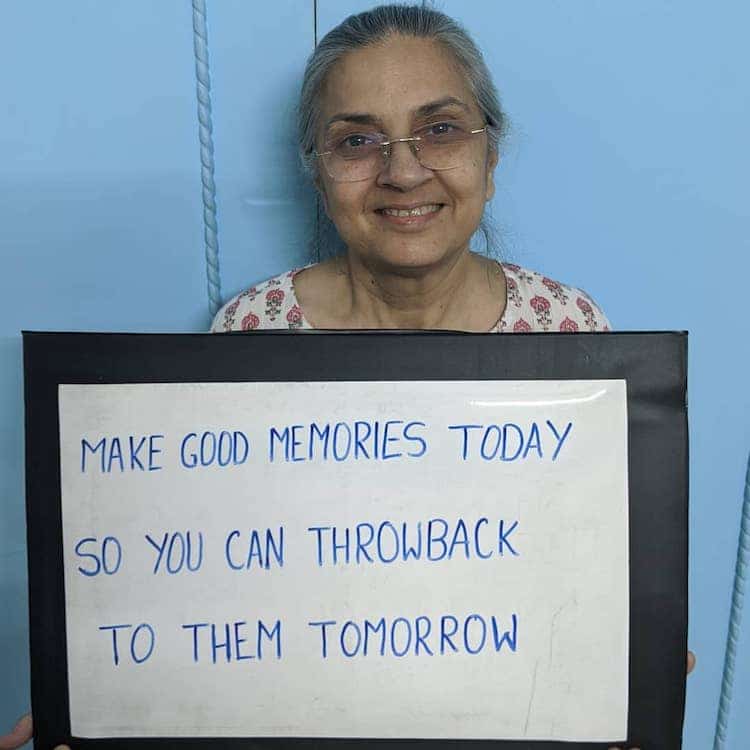 MAKE GOOD MEMORIES TODAY
SO YOU CAN THROWBACK
TO THEM TOMORROW